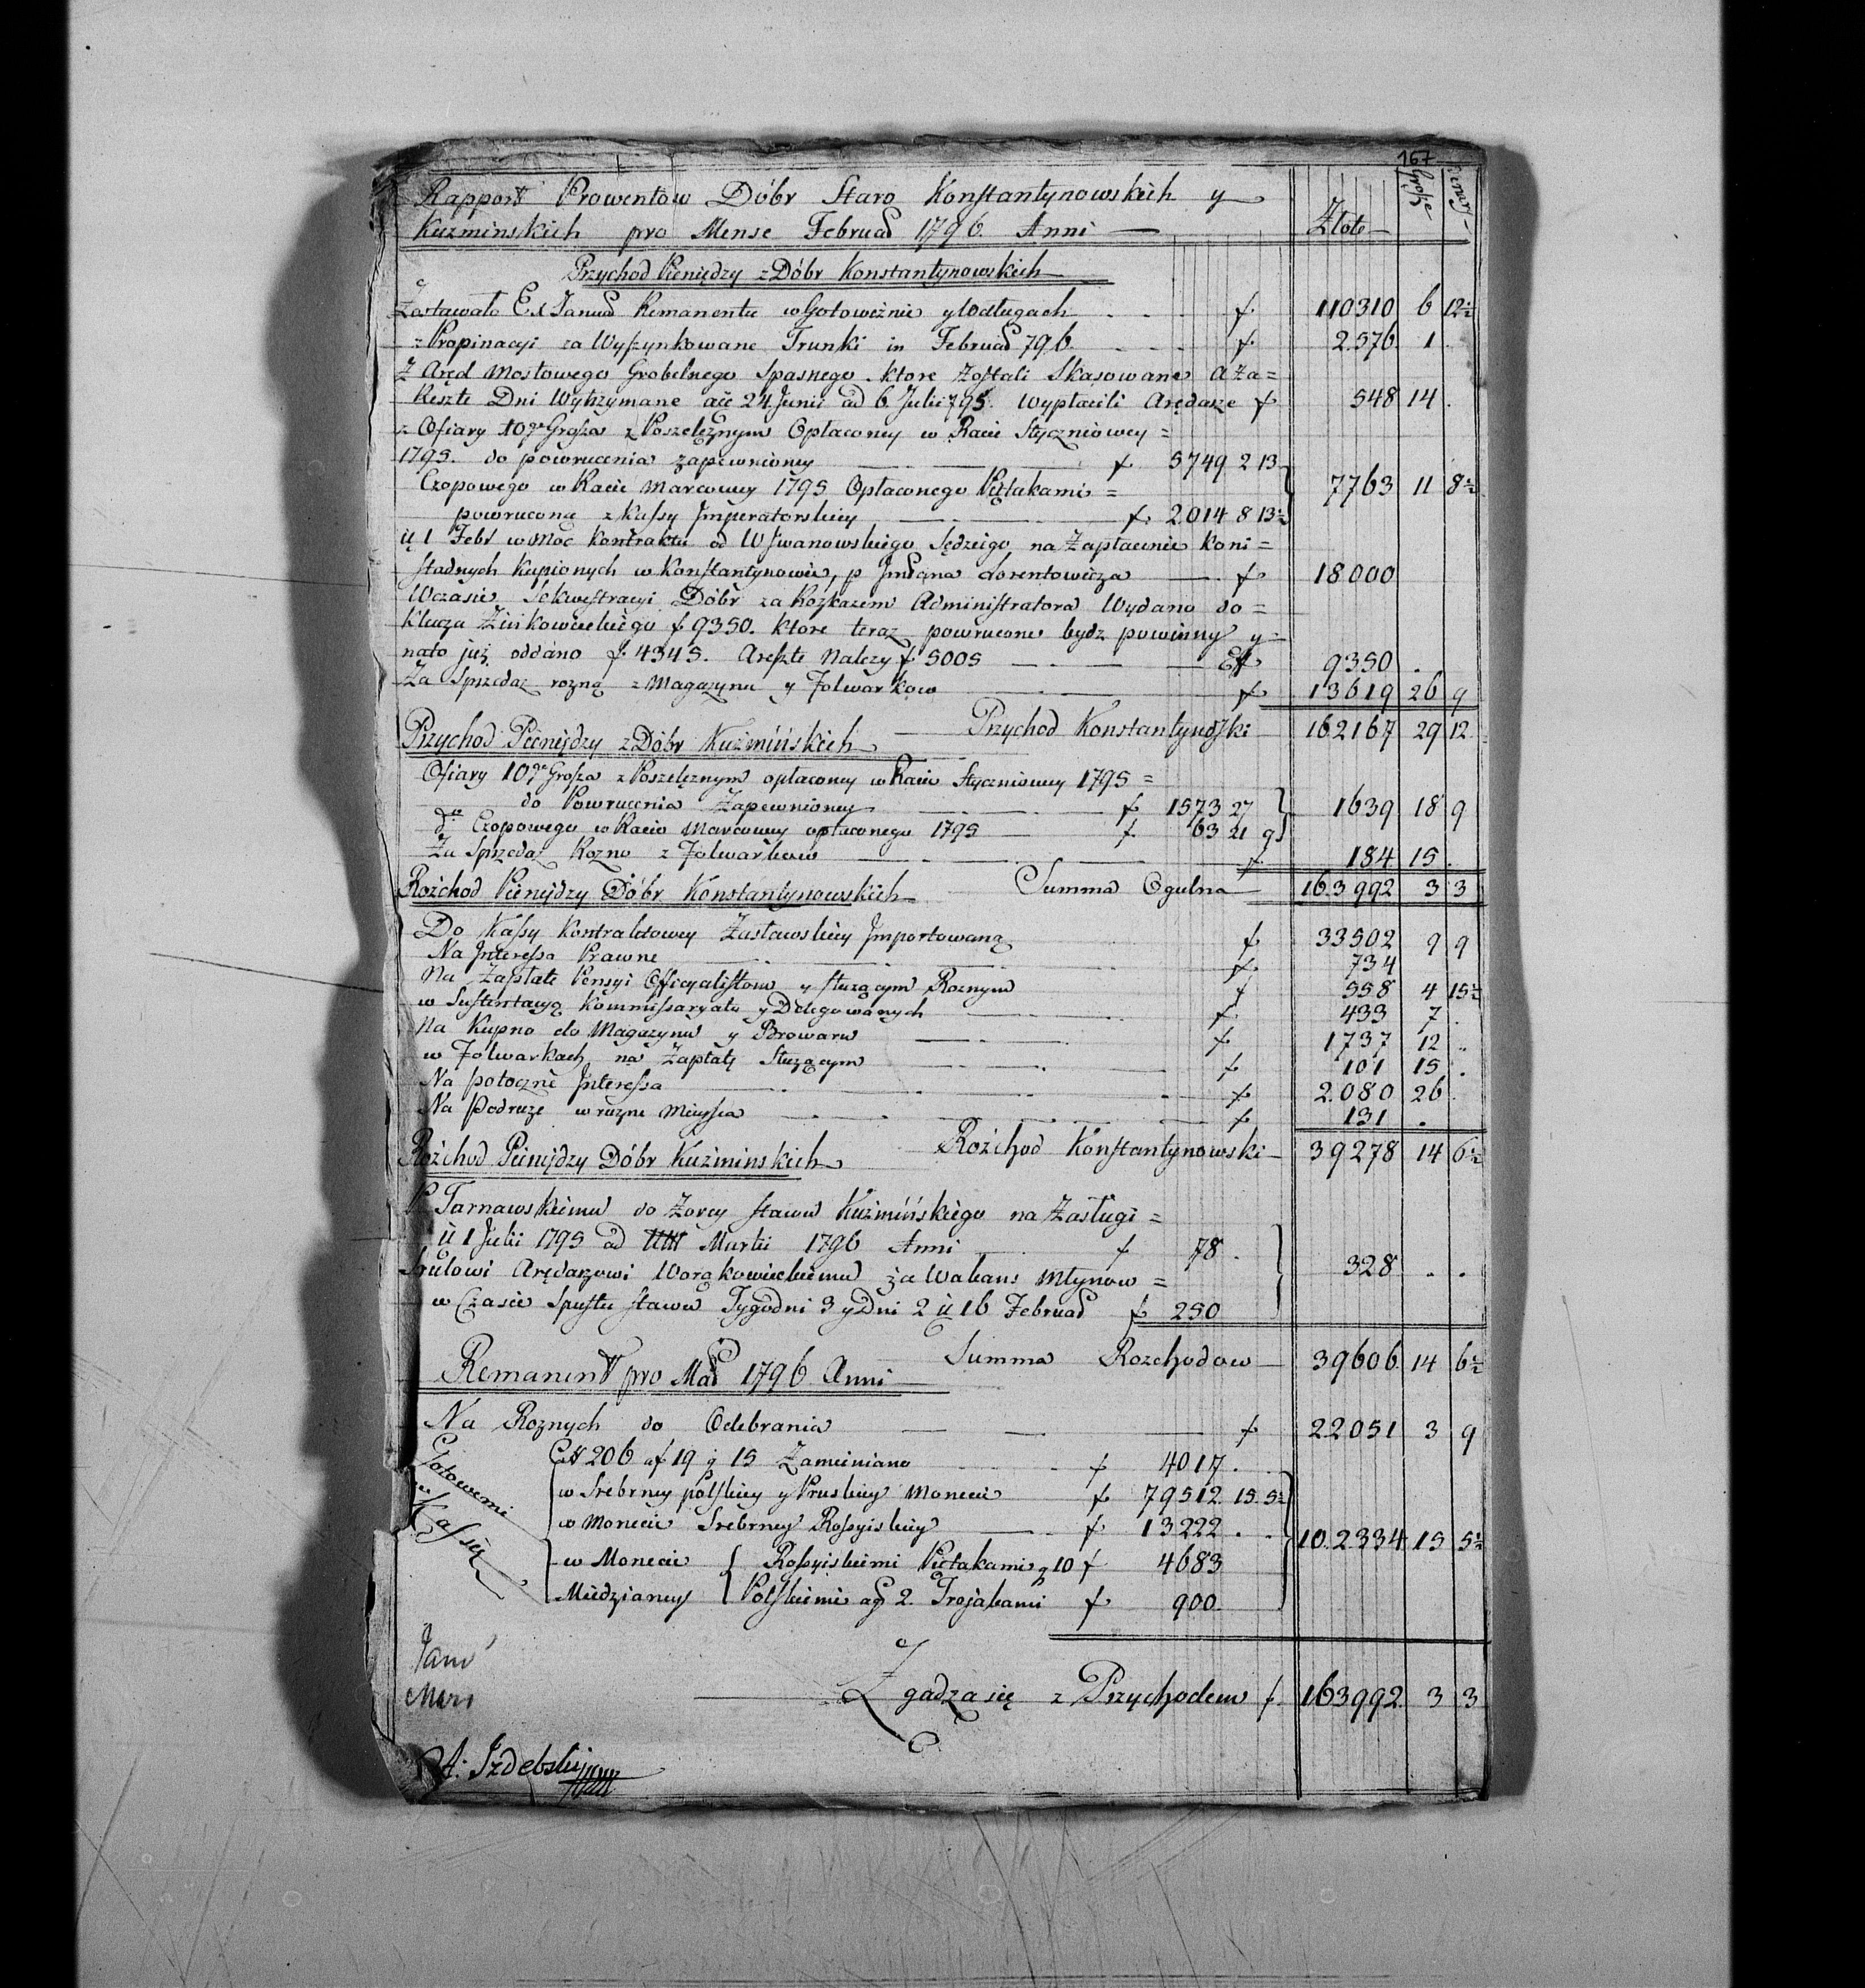 167
Rapport Prowentow Dóbr Staro Konstantynowskich y
Kuzminskich pro Mense Februad 1796. Anni
Złote Grosze
Przychod Pieniędzy z Dóbr Konstantynowskich
Zostawało Ex Januad Remanentu w Gotowiznie y w Długach f 110310 6 12½
z Propinacyi za Wyszynkowane Trunki in Februad 796. f 2576. 1
Z Aręd Mostowego Grobelnego Spasnego ktore Zostali Skasowane a Za=
Reszte Dni Wytrzymane a die 24 Junii ad 6 Julii 795. Wypłacili Arędarze f 548 14 .
z Ofiary 10go Grosza z Poszeleżnym Opłaconey w Racie Styczniowey =
1795. do powrucenia zapewnioney f 5749 2 13
Czopowego w Racie Marcowey 1795 Opłaconego Piętakami = 7763 11 8½
powrucone z Kassy Imperatorskiey f. 2014 8 13½
1 Febr w Moc Kontraktu od W Iwanowskiego Sędziego na Zapłacenie Koni =
Stadnych Kupionych w Konstantynowie, p Lorentowicza f 18000
W czasie Sekwestracyi Dóbr za Rozkazem Administratora Wydano do =
Klucza Zinkowieckiego f 9350. ktore teraz powrucone bydz powinny y
nato już oddano f. 4345. A reszte Należy f 5005 9350 .
Za Sprzedaż rozną z Magazynu y Folwarkow f 13619 26 9
Przychod Konstantynoski 162167 29 12
Przychod Pieniędzy z Dóbr Kuzmińskich
Ofiary 10go Grosza z Poszeleżnym opłaconey w Racie Styczniowey 1795 =
do Powrucenia Zapewnioney f 1573 27 1639 18 9
do Czopowego w Racie Marcowey opłaconego 1795 f 63 21 9
Za Sprzedaż Rozno z Folwarkow f 184 15 .
Summa Ogulna 163992 3 3
Rozchod Pieniędzy Dóbr Konstantynowskich
Do Kassy Kontraktowey Zasławskiey Importowano f 33502 9 9
Na Interessa Prawne f 734
Na Zapłate Pensyi Officyalistow y służącym Roznym f 558 4 15½
w Sustentacyą Kommissaryatu y Delegowanych f 433 7 .
Na Kupno do Magazynu y Browaru f 1737 12 ..
w Folwarkach na Zapłatę Służącym f 101 15 .
Na potoczne Interessa f 2080 26 .
Na Podruze w rozne Mieysca f 131 .
Rozchod Konstantynowski 39278 14 6½
Rozchod Pieniędzy Dóbr Kuzminskich
P Tarnawskiemu Dozorcy Stawu Kuzmińskiego na Zasługi =
1 Julii 1795 ad Martii 1796 Anni f 78 .
Srulowi Arędarzowi Worokowieckiemu za Wakans Młynow = 328 . .
w Czasie Spustu Stawu Tygodni 3 y Dni 2 16 Februad f 250
Summa Rozchodow 39606 14 6½
Remanent pro Mad 1796 Anni
Na Roznych do Odebrania f 22051 3 9
Gotowemi w Kassie
206 af 19 g 15 Zamieniano f 4017 .
w Srebrney polskiey y Pruskiey Monecie f 79512 15 5½
w Monecie Srebrney Rossyiskiey f 13222 . 102334 15 5½
w Monecie Rossyiskiemi Piętakami g 10 f 4683
Miedzianey Polskiemi ag 2. Trojakami f 900
Zgadza się z Przychodem f. 163992. 3 3
A: Izdebski